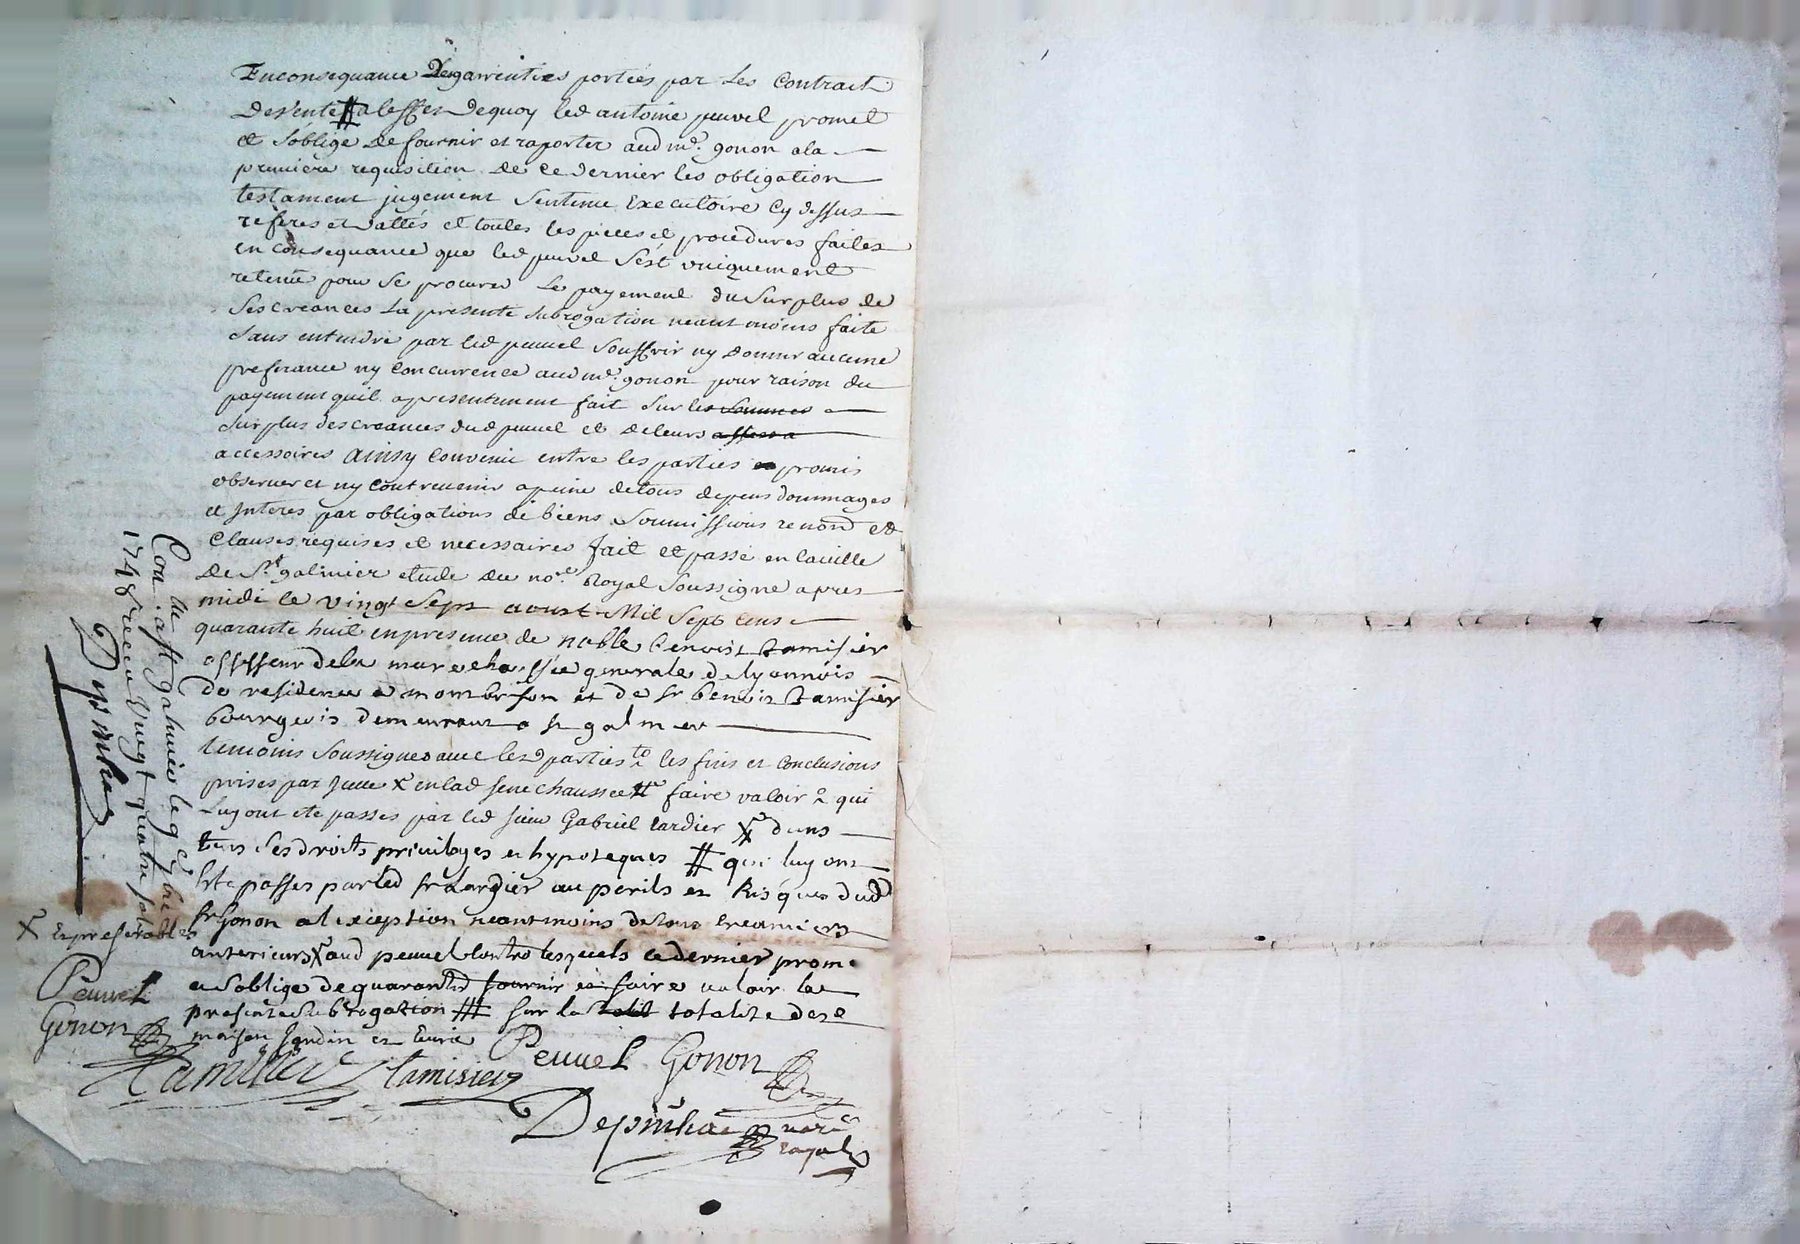 En consequance Des garrenties portées par Les Contract
De vente # a leffet De quoy led antoine peuvel promet
et soblige De fournir et raporter aud mr. gonon a la
premiere requisition de ce dernier les obligation
testament jugement Sentence Executoire Cy dessus
referes et dattés et toutes les pieces et procedures faites
en consequance que led peuvel s'est uniquement
retenüe pour se procurer le payement du surplus de
ses creances La presente subrogation neantmoins faite
sans entendre par led peuvel souffrir ny donner aucune
preferance ny concurrence aud mr. gonon pour raison du
payement quil a presentement fait sur les sommes
surplus des creances dud peuvel et de leurs
accessoires ainsy Convenu entre les parties promis
observer et ny contrevenir a peine de tous depens dommages
et Interes par obligations de biens soumissions renond et
Clauses requises et necessaires fait et passé en la ville
de St galmier etude du nore. Royal soussigné apres
midi le vingt Sept aoust Mil Sept cens
quarante huit en presence de noble Benoist tamisier
assesseur de la marechaussée generale de lyonnois
de residence a monbrison et de sr benoit tamisier
bourgeois demeurant a st galmier
temoins soussignes avec les parties les fins et conclusions
prises par X en lad senechaussee faire valoir qui
luy ont ete passes par led sieur Gabriel lardier X dans
tous ses droits privileges et hypoteques # qui luy ont
ete passes par led sr Lardier au perils et Risques dud
sr Gonon a lexception neantmoins de tous creanciers
anterieurs X aud peuvel contre lesquels ce dernier prom
et soblige de garantir fournir et faire valoir la
presente subrogation # sur la totalite des
maison jardin et
X et preferables
Peuvel
Gonon
Tamisier tamisier Peuvel Gonon
Depinhac
nore
royal
Con. a st galmier le
1748 recu vingt quatre sols
Depinhac